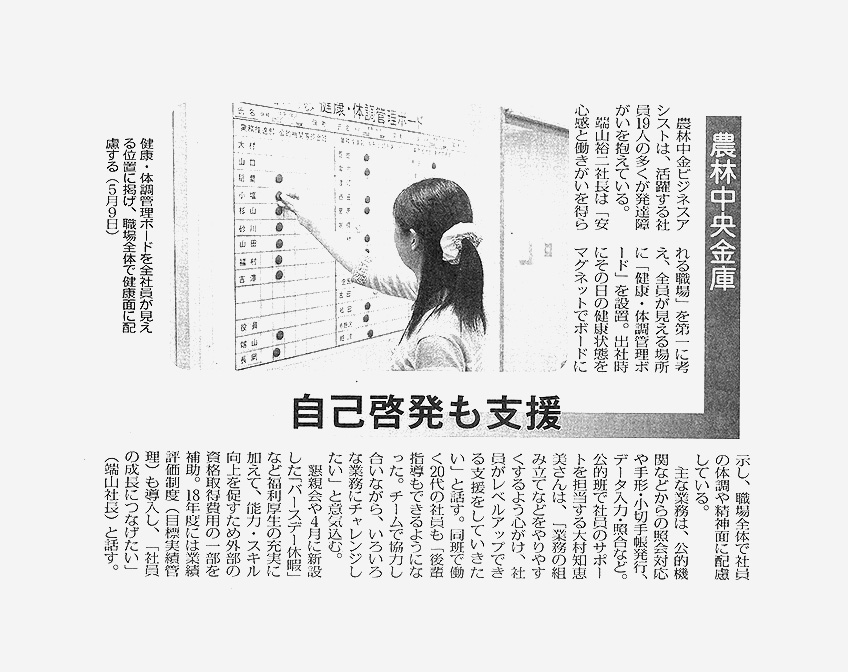 農林中央金庫
農林中金ビジネスア
シストは、活躍する社
員19人の多くが発達障
がいを抱えている。
端山裕二社長は「安
心感と働きがいを得ら
れる職場」を第一に考
え、全員が見える場所
に「健康・体調管理ボ
ード」を設置。出社時
にその日の健康状態を
マグネットでボードに
健康・体調管理ボード
大村
山口
小塩
杉山
砂川
山田
役員
端山
健康・体調管理ボードを全社員が見え
る位置に掲げ、職場全体で健康面に配
慮する（5月9日）
自己啓発も支援
示し、職場全体で社員
の体調や精神面に配慮
している。
主な業務は、公的機
関などからの照会対応
や手形・小切手帳発行、
データ入力・照合など。
公的班で社員のサポー
トを担当する大村知恵
美さんは、「業務の組
み立てなどをやりやす
くするよう心がけ、社
員がレベルアップでき
る支援をしていきた
い」と話す。同班で働
く20代の社員も「後輩
指導もできるようにな
った。チームで協力し
合いながら、いろいろ
な業務にチャレンジし
たい」と意気込む。
懇親会や4月に新設
した「バースデー休暇」
など福利厚生の充実に
加えて、能力・スキル
向上を促すため外部の
資格取得費用の一部を
補助。18年度には業績
評価制度（目標実績管
理）も導入し、「社員
の成長につなげたい」
（端山社長）と話す。